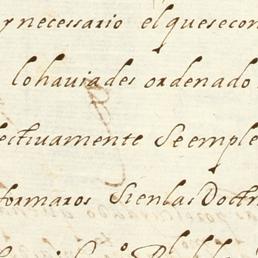 y necessario el que se con
lo havia des ordenado
ectivamente se emple
formaros Si en las Doctr